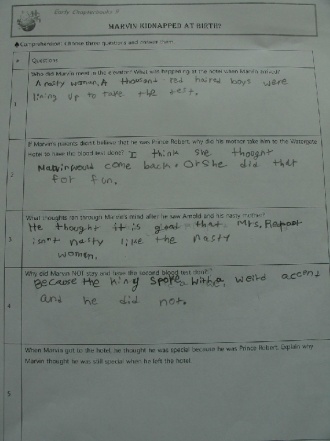 Early Chapter Books 4
MARVIN KIDNAPPED AT BIRTH?
◆Comprehension: Choose three questions and answer them.
# Questions
Who did Marvin meet in the elevator? What was happening at the hotel when Marvin arrived?
A nasty woman. A thousand red haired boys were
lining up to take the test.
1
If Marvin's parents didn't believe that he was Prince Robert, why did his mother take him to the Watergate
Hotel to have the blood test done? I think she thought
Marvin would come back. Or she did that
for fun.
2
What thoughts ran through Marvin's mind after he saw Arnold and his nasty mother?
He thought it is good that Mrs.
isn't nasty like the nasty
women.
3
Why did Marvin NOT stay and have the second blood test done?
Because the king spoke with a weird accent
and he did not.
4
When Marvin got to the hotel, he thought he was special because he was Prince Robert. Explain why
Marvin thought he was still special when he left the hotel.
5